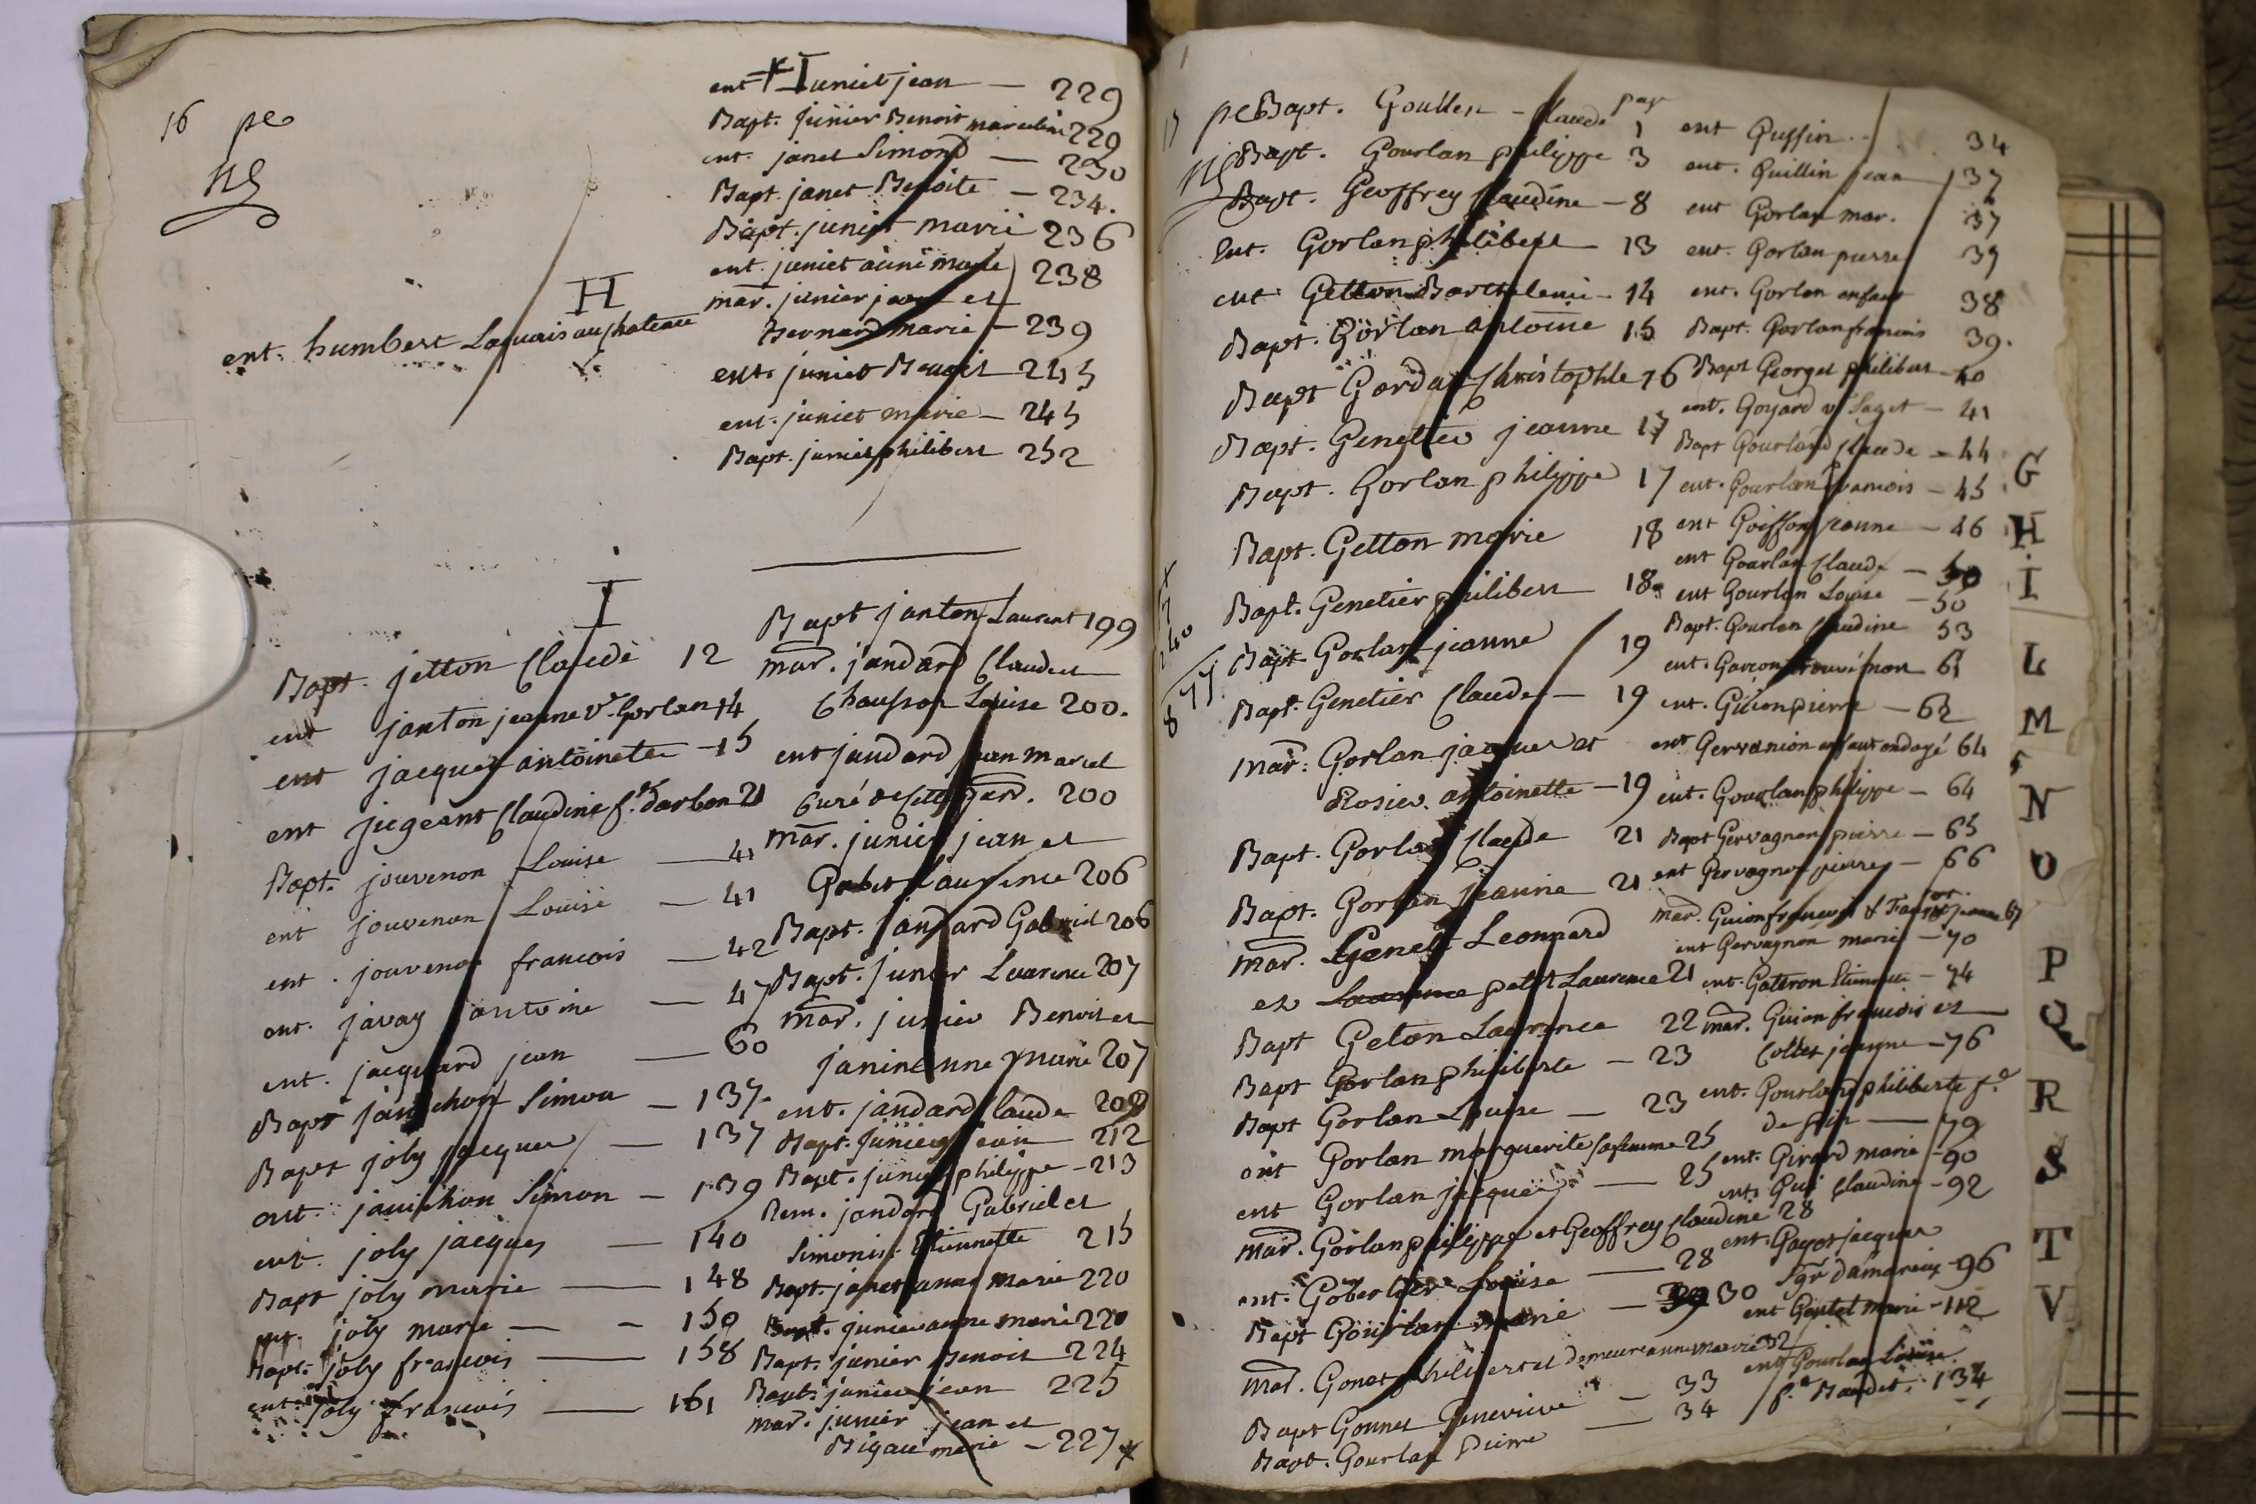 16 pe
H
ent. humbert Laquais au chateau
ent + Juniet jean — 229
Bapt. Junier Benoit marcelin 229
ent. janet Simond — 230
Bapt. janet Benoite — 234.
Bapt. juniet marie 236
ent. juniet aimé marie 238
mar. junier jean et
Bernard marie — 239
ent. juniet Benoit 245
ent. juniet marie — 245
Bapt. juniet philibert 252
I
Bapt. jetton Claude 12
ent janton jeanne v.e Gorlan 14
ent jacquet antoinette — 15
ent jugeant Claudine f.e darbon 21
Bapt. jouvenon Louise — 41
ent jouvenon Louise — 41
ent. jouvenon francois — 42
ent. javay antoine — 47
ent. jacquard jean — 60
Bapt janichon Simon — 137.
Bapt joly jacques — 137
ent. janichon Simon — 139
ent. joly jacques — 140
Bapt joly marie — 148
ent. joly marie — 150
Bapt. joly francois — 158
ent. joly francois — 161
Bapt janton Laurent 199
mar. jandard Claude et
Chausson Louise 200.
ent jandard jean marcel
Curé de 200
mar. junier jean et
Gobet Laurence 206
Bapt. jandard Gabriel 206
Bapt. junier Laurence 207
mar. junier Benoit et
janin anne marie 207
ent. jandard Claude 209
Bapt. Junier jean 212
Bapt. junier philippe — 213
Rem. jandard Gabriel et
Simonin Etiennette 215
Bapt. janet anne marie 220
Bapt. junier anne marie 220
Bapt. junier Benoit 224
Bapt. junier jean 225
mar. junier jean et
Bigaud marie — 227
17 pe Bapt. Goullen — Claude pag 1
Bapt. Gourlan philippe 3
Bapt. Geoffrey Claudine — 8
Ent. Gorlan philibert 13
ent Getton Barthelemi — 14
Bapt. Gorlan antoine 15
Bapt Gordat Christophle 16
Bapt. Genetier jeanne 17
Bapt. Gorlan philippe 17
Bapt. Getton marie 18
Bapt. Genetier philibert 18
Bapt Gorlan jeanne 19
Bapt. Genetier Claude — 19
mar. Gorlan jacques et
Rosier antoinette — 19
Bapt. Gorlan Claude 21
Bapt. Gorlan jeanne 21
mar. Genet Leonnard
et Laurence petit Laurence 21
Bapt Geton Laurence 22
Bapt Gorlan philiberte — 23
Bapt Gorlan Louise — 23
ent Gorlan marguerite sa femme 25
ent Gorlan jacques — 25
mar. Gorlan philippe et Geoffrey Claudine 28
ent. Goberlier Louise — 28
Bapt Gourlan marie — 30
mar. Gonet philibert et Demeure anne marie 32
Bapt Gonnet Genevieve — 33
Bapt. Gourlan Pierre — 34
ent Guffin 34
ent. Guillin jean 37
ent Gorlan mar. 37
ent. Gorlan pierre 39
ent. Gorlan enfant 38
Bapt. Gorlan francois 39.
Bapt Georget philibert 40
ent. Goyard v.e Saget — 41
Bapt Gourland Claude — 44
ent. Gourlan francois — 45
ent Goiffon jeanne — 46
ent Gourlan Claude — 50
ent Gourlan Louise — 50
Bapt. Gourlan Claudine 53
ent. Garcon trouvé mort 61
ent. Guion pierre — 62
ent Gervanion enfant ondoyé 64
ent. Gourlan philippe — 64
Bapt Gervagnon pierre — 65
ent Gervagnon pierre — 66
mar. Guion francois & jeanne 67
ent Gervagnon marie — 70
ent. Gateron Etiennette — 74
mar. Guion francois et
Collet jeanne — 76
ent. Gourland philiberte f.e
de — 79
ent. Girard marie — 90
ent. Gui Claudine — 92
ent. Gayot jacques
Sgr damareix — 96
ent Gentet marie — 112
ent Gourlan Louise
f.e Baudet. 134
G
H
I
L
M
N
O
P
Q
R
S
T
V